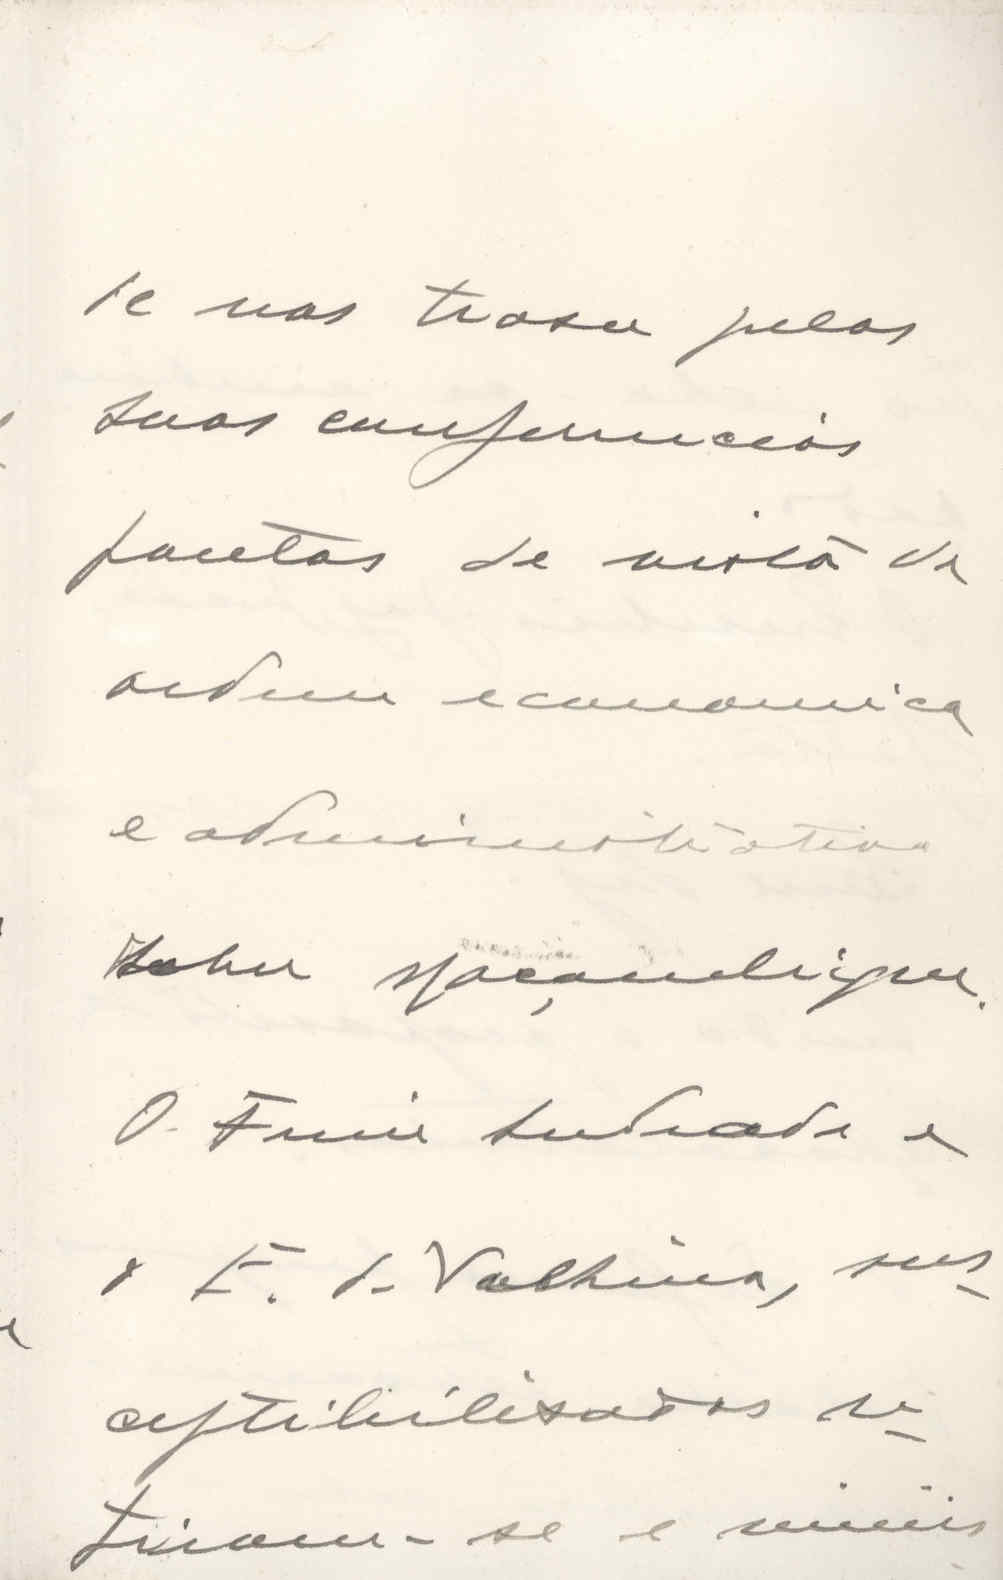 te nos trazer pelas
suas conferencias
pontos de vista de
ordem economica
e administrativa
sobre Moçambique.
O Freire Andrade e
o E. de Vilhena, sus-
ceptibilisados re-
tiram-se e